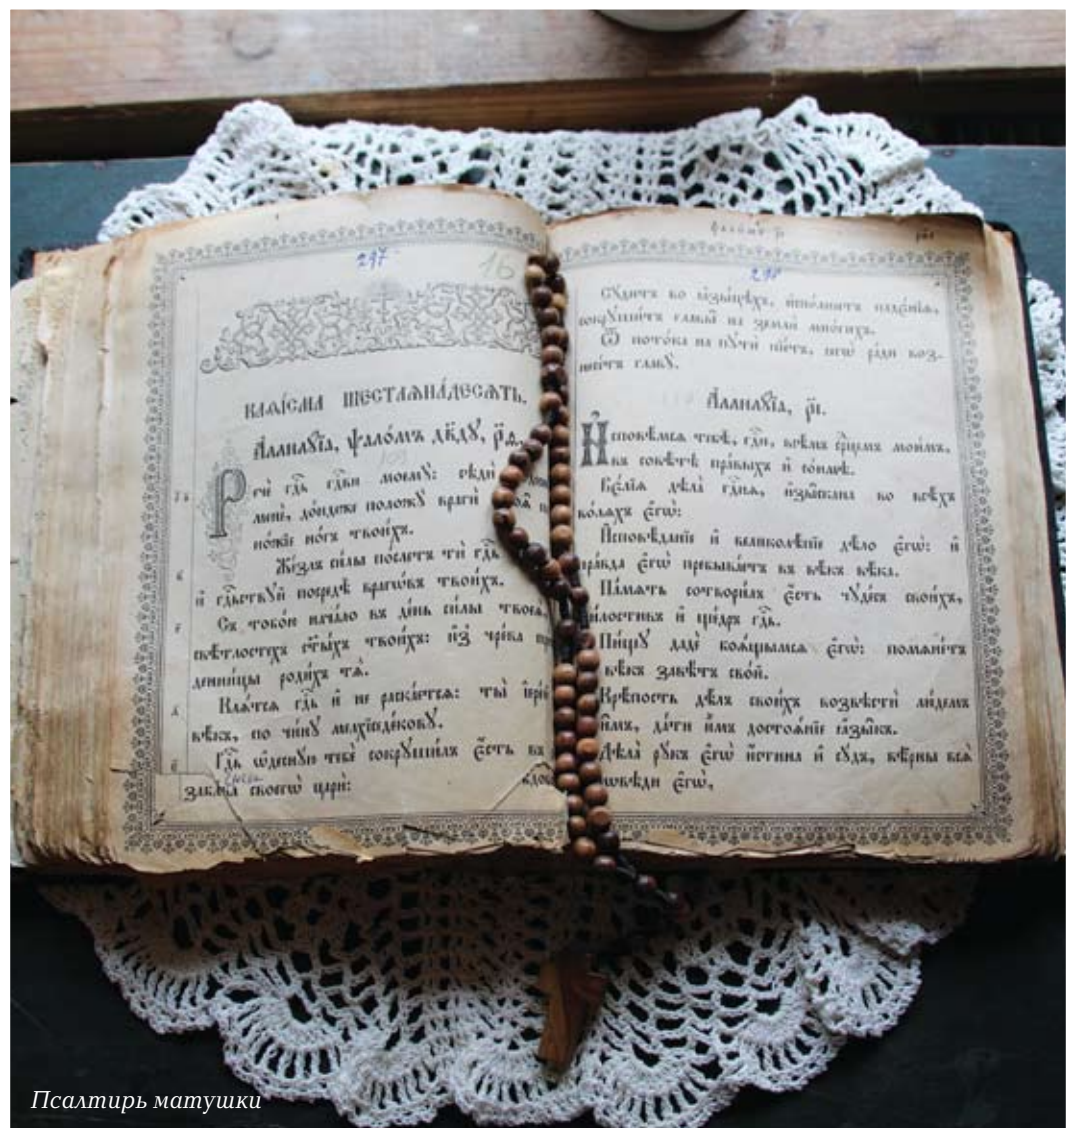 247
16
КАѲІ́СМА ШЕСТАЯНА́ДЕСѦТЬ.
А҆ллилꙋ́їа, ѱало́мъ дв҃дꙋ, р҃ѳ.
Речѐ гдⷭ҇ь гдⷭ҇ви моемꙋ̀: сѣдѝ
менѐ, до́ндеже положꙋ̀ врагѝ
подно́жїе но́гъ твои́хъ.
Же́злъ си́лы по́слетъ тѝ гдⷭ҇ь
и҆ гдⷭ҇ьствꙋй посредѣ̀ врагѡ́въ твои́хъ.
Съ тобо́ю нача́ло въ де́нь си́лы твоеѧ̀
свѣ́тлостехъ ст҃ы́хъ твои́хъ: и҆з̾ чре́ва
денни́цы роди́хъ тѧ̀.
Клѧ́тсѧ гдⷭ҇ь и҆ не раска́етсѧ: ты̀ і҆ере́й
вѣ́къ, по чи́нꙋ мелхїседе́ковꙋ.
Гдⷭ҇ь ѡ҆деснꙋ́ю тебѐ сокрꙋши́лъ є҆́сть въ
своегѡ̀ цари̑:
ѱало́мъ
Сꙋ́дитъ во ꙗ҆зы́цѣхъ, и҆спо́лнитъ падє́нїѧ,
сокрꙋши́тъ главы̑ на землѝ мно́гихъ.
Ѿ пото́ка на пꙋтѝ пїе́тъ, сегѡ̀ ра́ди воз-
несе́тъ главꙋ̀.
А҆ллилꙋ́їа, р҃і.
И҆сповѣ́мсѧ тебѣ̀, гдⷭ҇и, всѣ́мъ срⷣцемъ мои́мъ,
въ совѣ́тѣ пра́выхъ и҆ со́нмѣ.
Вє́лїѧ дѣла̀ гдⷭ҇нѧ, и҆зы̑скана во всѣ́хъ
во́лѧхъ є҆гѡ̀:
И҆сповѣ́данїе и҆ великолѣ́пїе дѣ́ло є҆гѡ̀: и҆
пра́вда є҆гѡ̀ пребыва́етъ въ вѣ́къ вѣ́ка.
Па́мѧть сотвори́лъ є҆́сть чꙋде́съ свои́хъ,
ми́лостивъ и҆ ще́дръ гдⷭ҇ь.
Пи́щꙋ дадѐ боѧ́щымсѧ є҆гѡ̀: помѧне́тъ
вѣ́къ завѣ́тъ сво́й.
Крѣ́пость дѣ́лъ свои́хъ возвѣстѝ лю́демъ
и҆̀мъ, да́ти и҆̀мъ достоѧ́нїе ꙗ҆зы̑къ.
Дѣла̀ рꙋ́къ є҆гѡ̀ и҆́стина и҆ сꙋ́дъ, вѣ̑рны всѧ̑
за́пѡвѣди є҆гѡ̀,
Псалтирь матушки